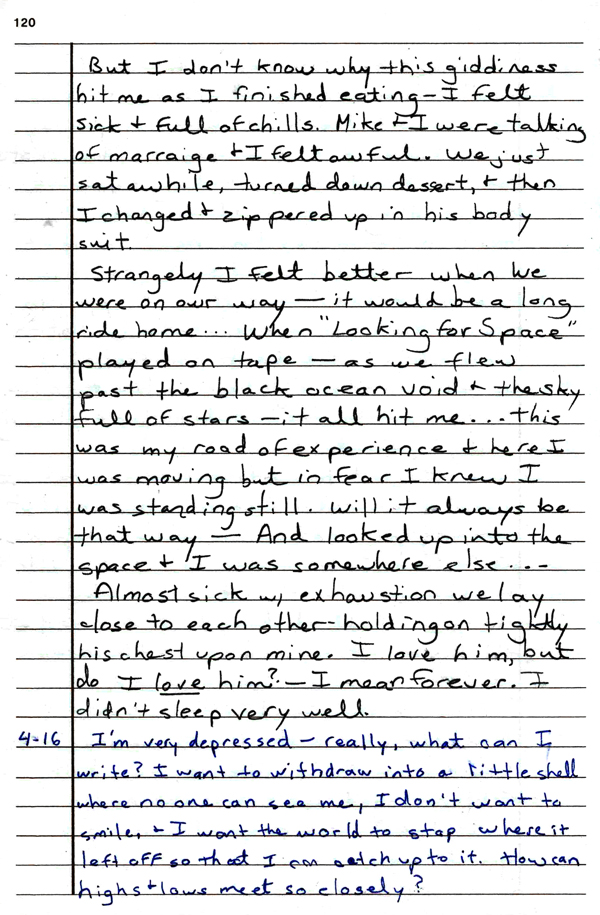 120
But I don't know why this giddiness
hit me as I finished eating - I felt
sick + full of chills. Mike + I were talking
of marraige + I felt awful. We just
sat awhile, turned down dessert, + then
I changed + zippered up in his body
suit.
Strangely I felt better when we
were on our way — it would be a long
ride home... When "Looking for Space"
played on tape — as we flew
past the black ocean void + the sky
full of stars — it all hit me... this
was my road of experience + here I
was moving but in fear I knew I
was standing still. Will it always be
that way — And looked up into the
space + I was somewhere else...-
Almost sick w/ exhaustion we lay
close to each other - holding on tightly
his chest upon mine. I love him, but
do I love him? — I mean forever. I
didn't sleep very well.
4-16 I'm very depressed - really, what can I
write? I want to withdraw into a little shell
where no one can see me, I don't want to
smile, + I want the world to stop where it
left off so that I can catch up to it. How can
highs + lows meet so closely?